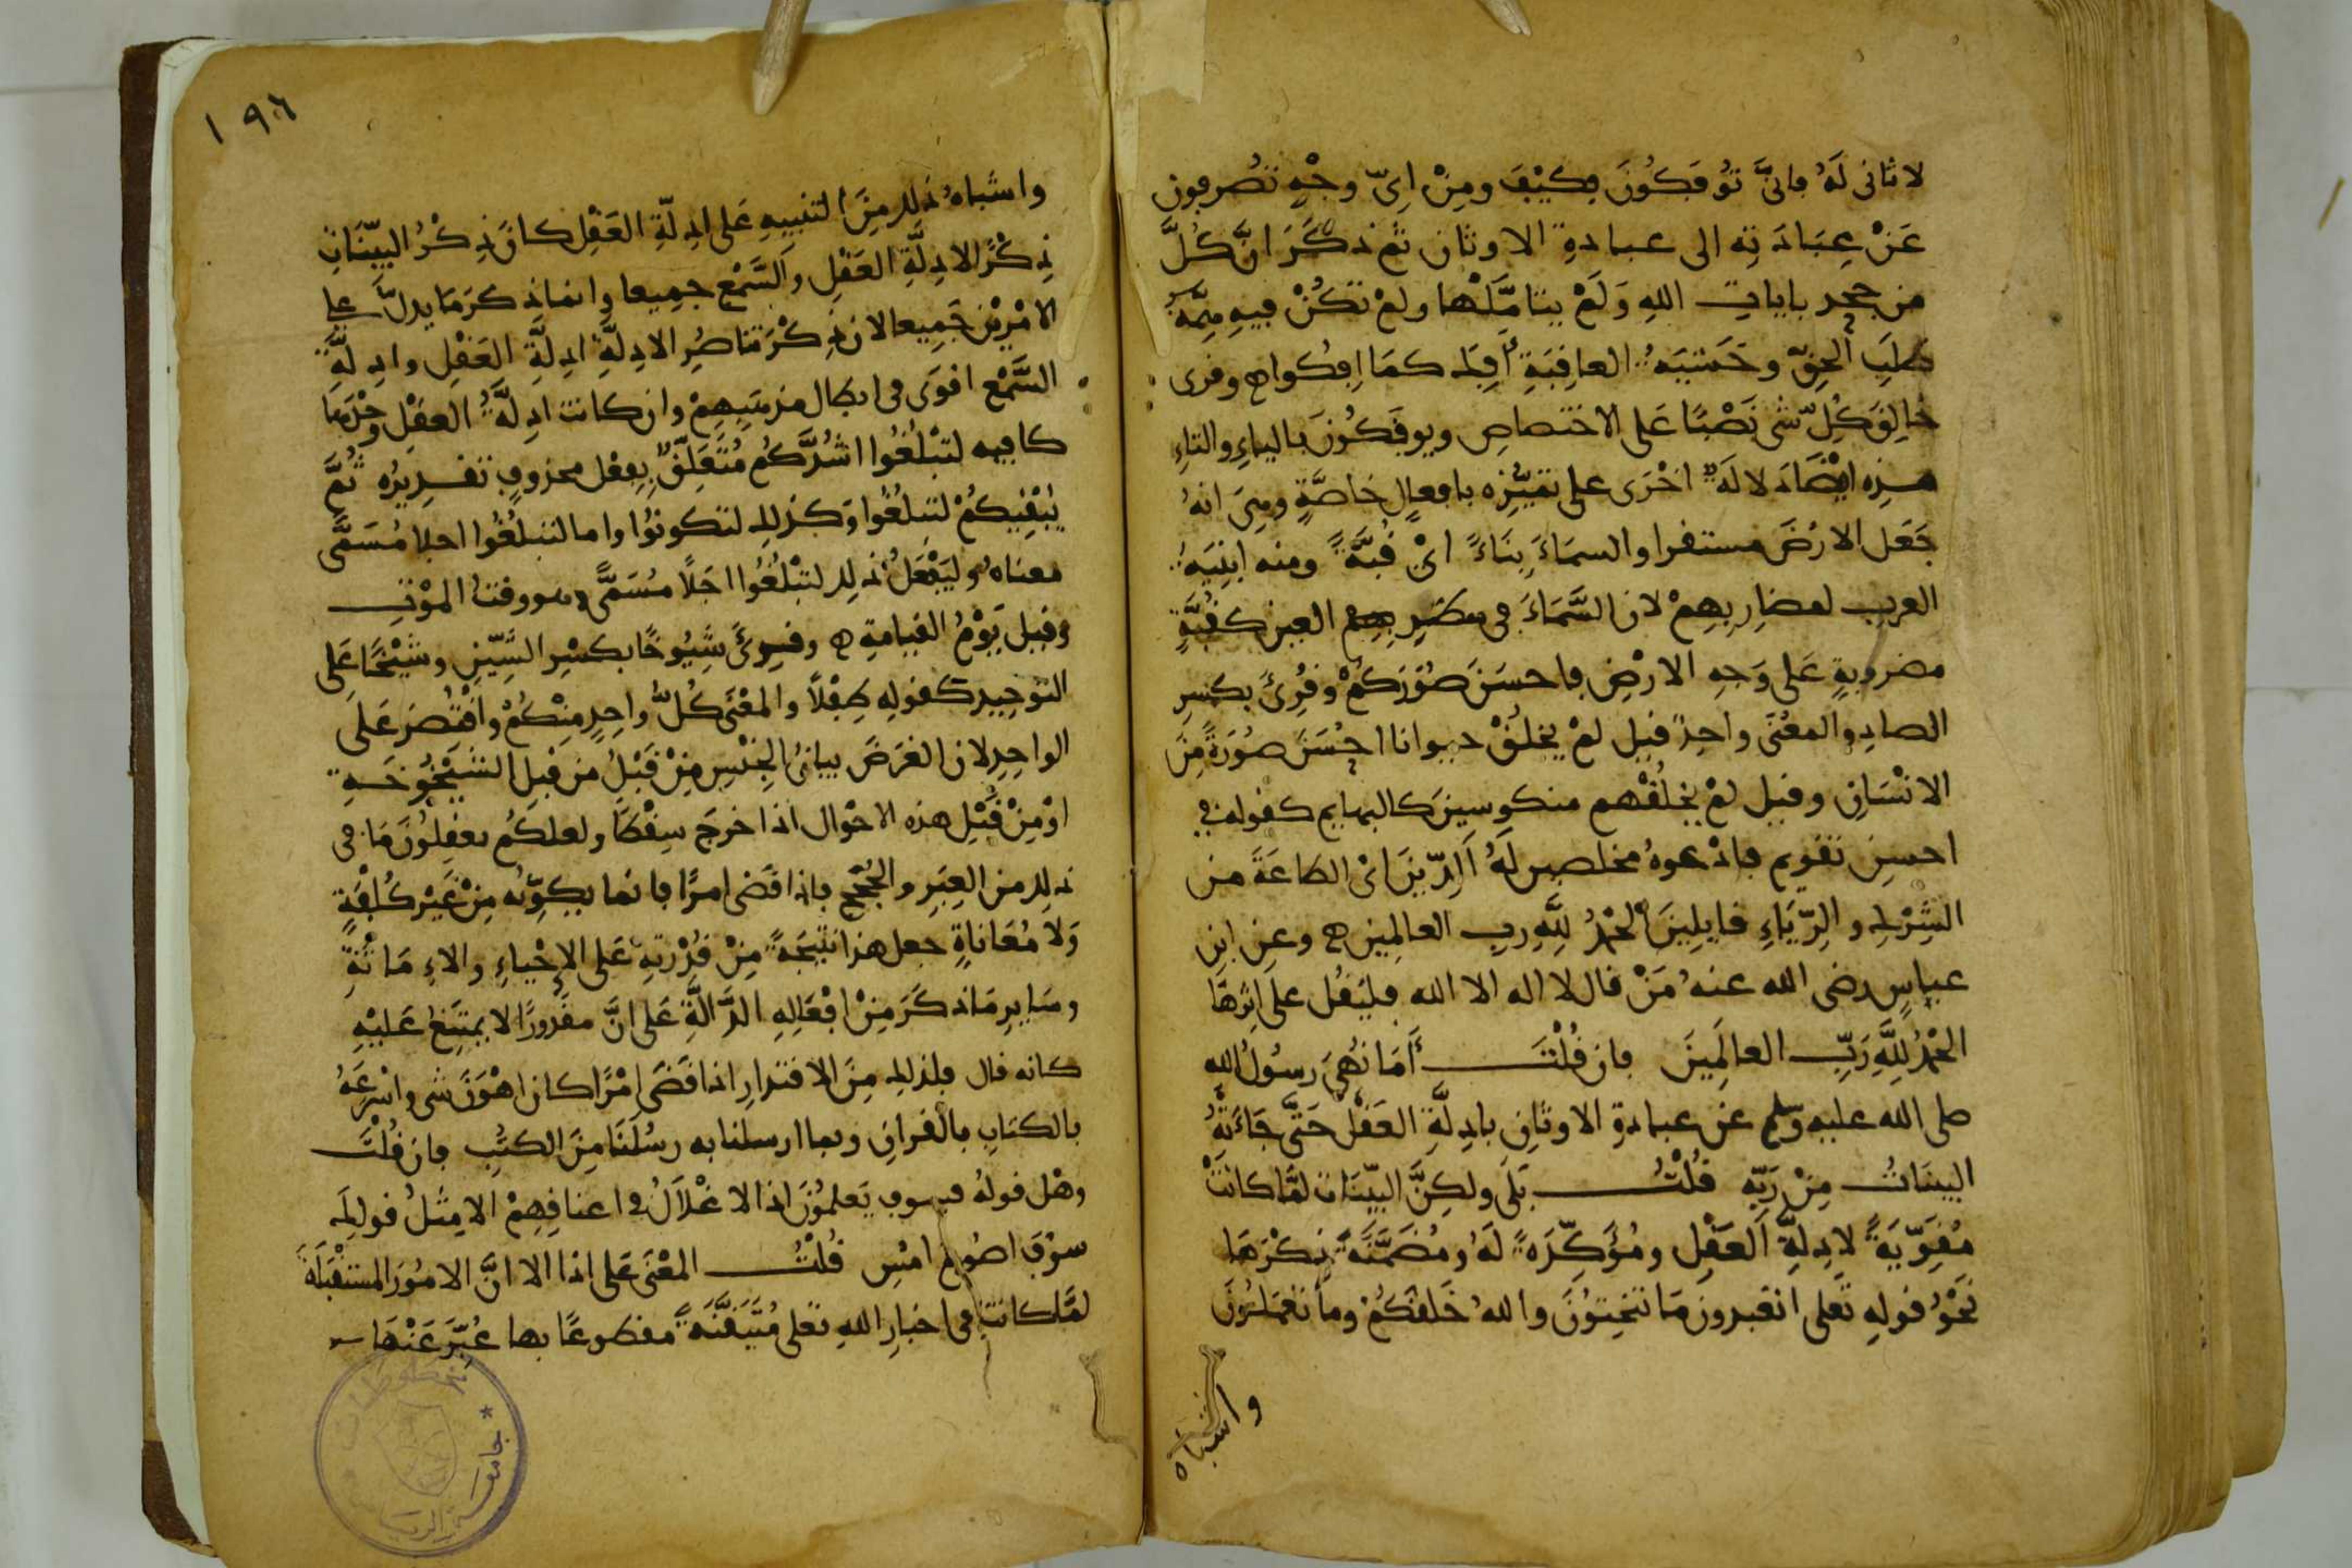 لا ثانى لَهُ فانىَّ تُوفَكُونَ فكَيْفَ ومِنْ اىِّ وجْهٍ تُصرفون
عَنْ عِبَادَتِه الى عبادةِ الاوثان ثم ذكَرَ انَّ كُلَّ
من جحد بايات اللهِ وَلَمْ يتامَّلْها ولمْ تكُنْ فيهِ هِمَّةُ
طلَبِ الحقّ وخَشْيَةُ العاقِبَةِ أُفِكَ كمَا اُفِكوا ه وقرى
خالِقَ كلّ شى نَصْبًا عَلى الاختصاصِ ويوفَكُونَ بالياءِ والتاءِ
هذِه ايْضًا دَلالَةٌ اخْرَى على تمَيُّزِه بافعالٍ خاصَّةٍ وهِىَ انهُ
جَعَل الارْضَ مستقرا والسمَاءَ بِنَاءً اىْ قُبَّةً ومنه ابْنِيَةُ
العرب لمضارِبِهِمْ لان السَّمَاءَ فى منظر العين كقُبَّةٍ
مضروبةٍ عَلى وَجهِ الارْضِ فاحسَنَ صُوَرَكُمْ وقُرِئَ بكسرِ
الصادِ والمعْنَى واحِدٌ قيل لمْ يخلُقْ حيوانا احْسَنَ صُورَةً مِنَ
الانْسَانِ وقيل لمْ يخلُقْهم منكوسينَ كالبهايم كقوله فى
احسنِ تقويم فادْعوهُ مخلصين لَهُ الدِّينَ اىْ الطاعَةَ من
الشِّرْكِ والرِّيَاءِ قايلينَ الحمْدُ لِلَّهِ ربِ العالمِينَ ه وعن ابنِ
عباسٍ رضى الله عنهُ مَنْ قال لا اله الا الله فليَقُل على اِثرِهَا
الحمْدُ لِلَّهِ رَبِّ العالَمِينَ فان قُلْتَ أَمَا نُهِىَ رسُولُ الله
صلى الله عليه وسلم عن عبادةِ الاوثانِ بادِلَّةِ العَقْلِ حَتَّى جَاءَتْهُ
البينَاتُ مِنْ رَبِّه قُلْتُ بَلَى ولكِنَّ البيّنَات لمَّا كانتْ
مُقَوِّيَةً لادِلَّةِ العَقْلِ ومُؤَكِّدَةً لَهُ ومُضَمَّنَةً ذِكْرَهَا
نَحْوُ قولهِ تَعلى اتعبدون مَا تنحِتُونَ واللهُ خَلقكُمْ ومَا تعْمَلُونَ
واشباه
١٩٦
واشباهُ ذلك مِنَ التنبيهِ عَلى ادِلَّةِ العَقْلِ كانَ ذِكْرُ البيّنَاتِ
ذِكْرًا لادِلَّةِ العَقْلِ والسَّمْعِ جمِيعا وانما ذكرَ مَا يدلّ على
الامْرَيْنِ جَمِيعا لان ذِكْرَ تناصُرِ الادِلَّةِ ادِلَّةِ العَقْلِ وادِلَّةِ
السَّمْعِ اقوَى فى ابطال مذهَبِهِمْ وان كانت ادِلَّةُ العقْل وحْدَهَا
كافيه لتَبْلُغُوا اشُدَّكُم مُتَعَلِّقٌ بِفعْل محذوفٍ تقديرُه ثُمَّ
يُبْقيكُمْ لتبلُغُوا وَكذلك لتكونُوا واما لتبلُغُوا اجلا مُسَمًّى
معناهُ وليَفْعَلُ ذلك لتبْلُغُوا اجَلاً مُسَمًّى وهو وقتُ المَوْتِ
وقيل يَوْمُ القيامةِ ه وقرِئَ شِيُوخًا بكسْرِ الشِّينِ وشَيْخًا عَلى
التوحِيدِ كقولِه طِفْلاً والمعْنَى كُلُّ واحِدٍ مِنْكُمْ واقْتُصرَ عَلى
الواحِدِ لان الغَرَضَ بيانُ الجِنْسِ مِنْ قَبْلُ من قبلِ الشيْخُوخَةِ
اوْ مِنْ قَبْلِ هذه الاحْوالِ اذا خرجَ سِقْطًا ولعلكُم تعقِلُونَ مَا فى
ذلِكَ من العِبَرِ والحُجَجِ فاذا قَضى امرًا فانما يكوِّنُه مِنْ غَيْرِ كُلْفَةٍ
وَلا مُعَاناةٍ جعل هذا نتيجَةً مِنْ قُدْرَتِهِ عَلى الاِحْياءِ والاِمَاتَةِ
وسَايرِ مَا ذكَرَ مِنْ افْعَالِهِ الدَّالَّةِ عَلى انَّ مقْدورًا لا يمتَنِعُ عَليْهِ
كانه قال فلذلِك مِنَ الاقتدارِ اذا قَضَى امْرًا كان اهْوَنَ شى واسْرعَهُ
بالكتابِ بالقرانِ وبما ارسلنا به رسُلَنَا مِنَ الكتُبِ فان قُلْتَ
وهل قولهُ فسوف يَعلمُونَ اذ الاغْلاَلُ فى اعناقِهِمْ الا مِثلُ قولِكَ
سوْفَ اصُومُ امْسِ قُلْتُ المعْنَى عَلى اذا الا انَّ الامُورَ المستقْبَلَةَ
لمَّا كانت فى اخبارِ اللهِ تعلى مُتَيَقَّنَةً مقطوعًا بها عُبِّرَ عَنْهَا